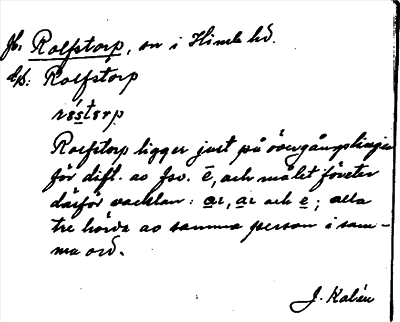 fb. Rolfstorp, sn i Himle hd.
dp: Rolfstorp
Rolfstorp ligger just på övergångslinjen
för dift. av fsv. ē, och målet företer
därför vacklan: , och e; alla
tre hörda av samma person i sam-
ma ord.
J. Kalén